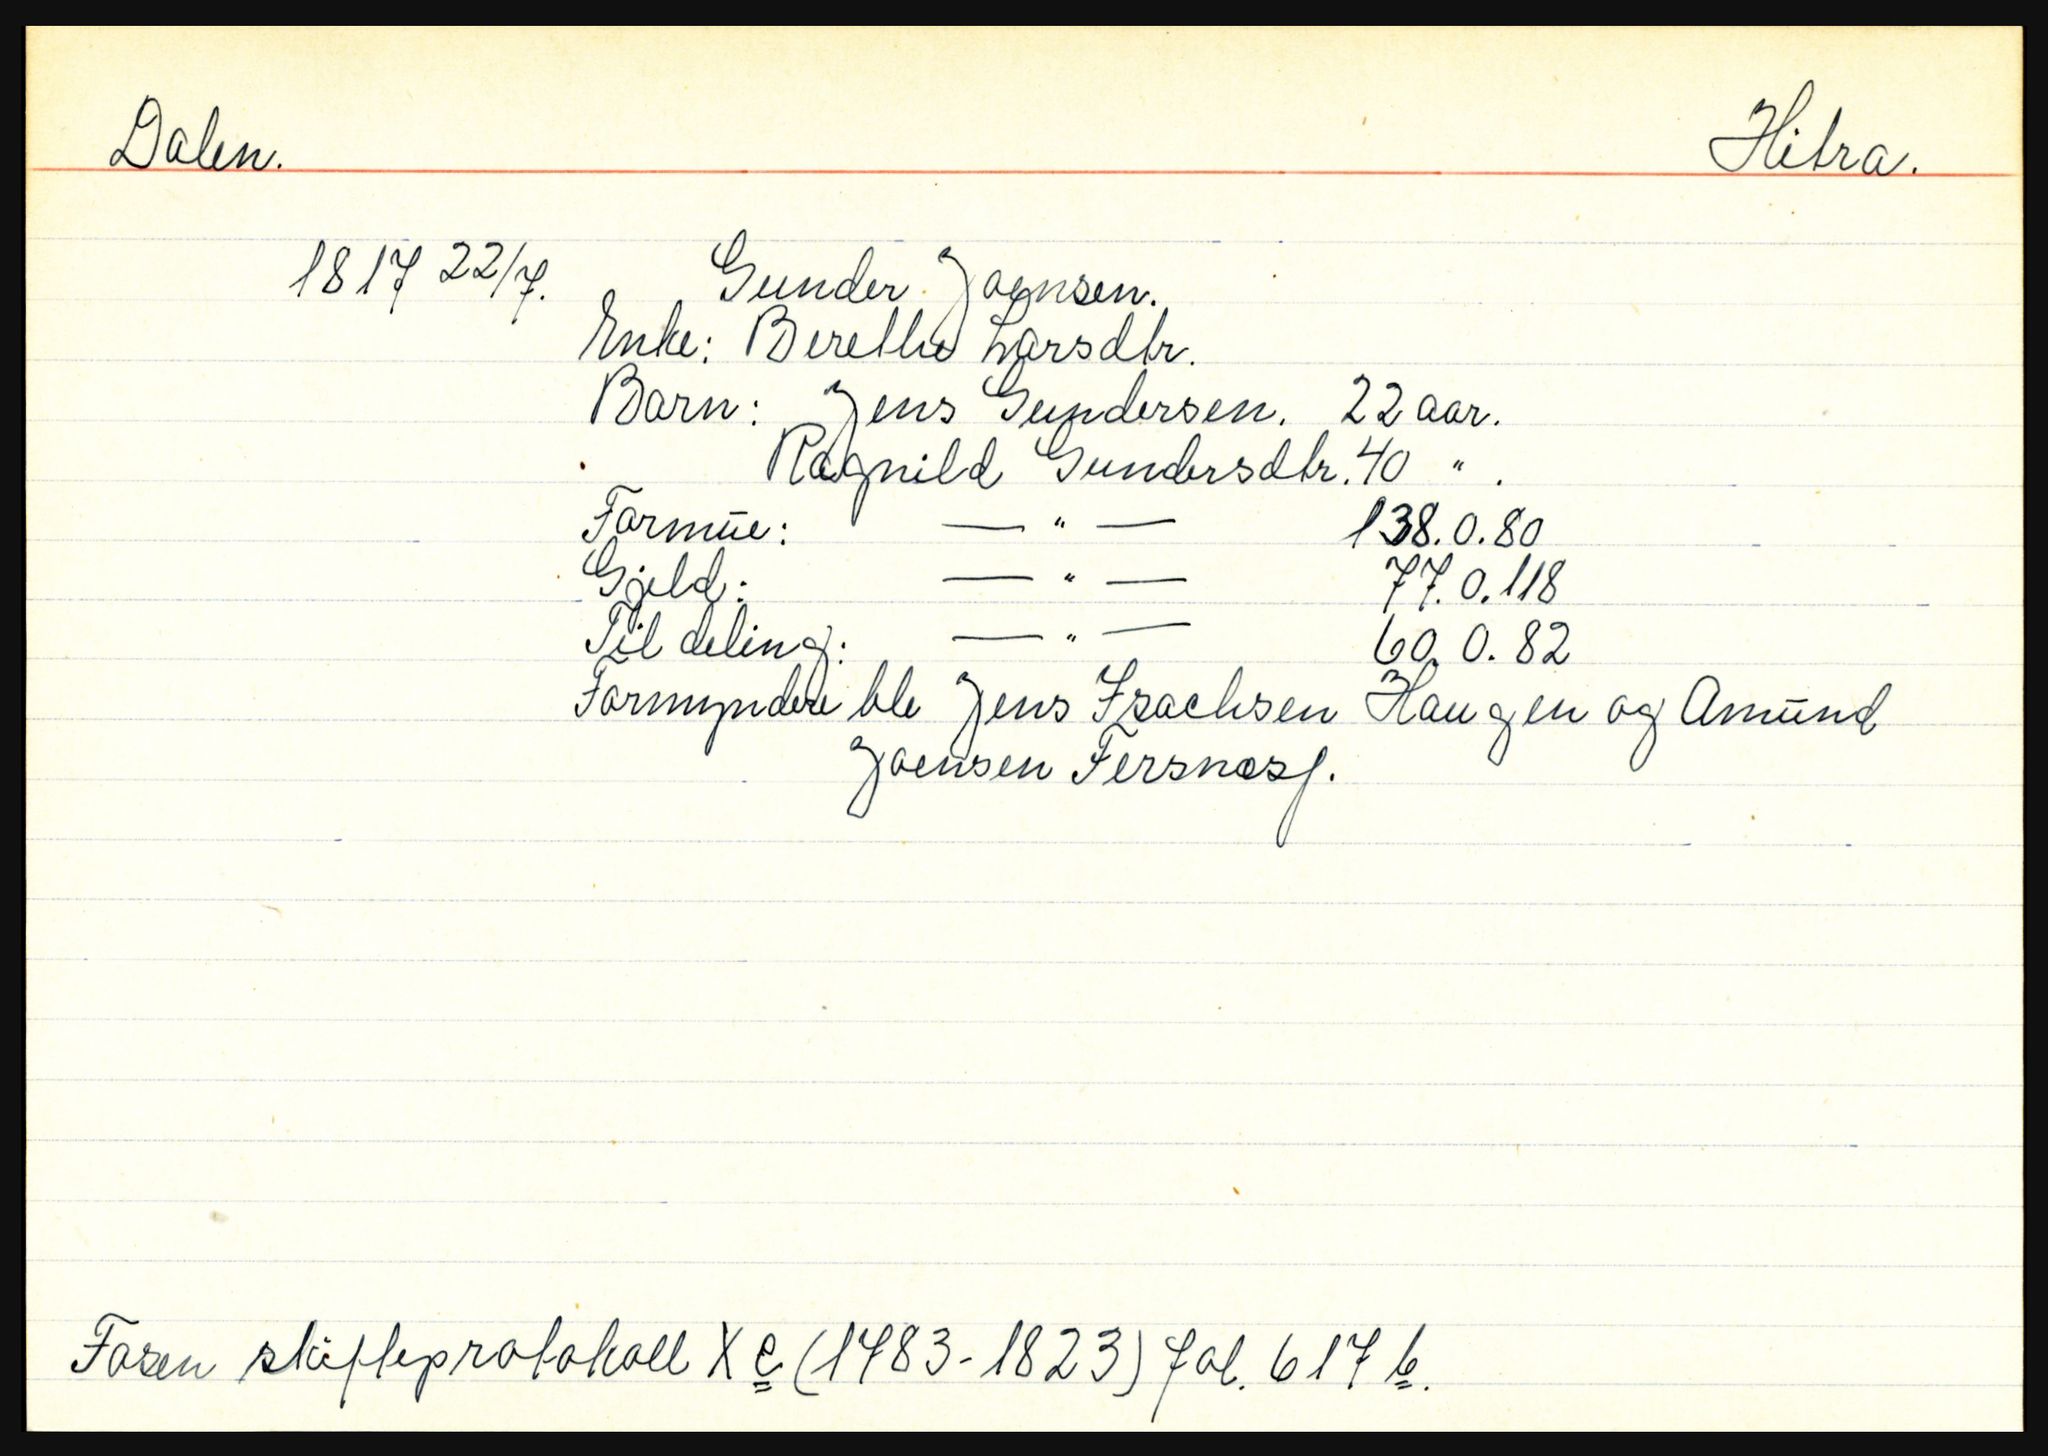 Dalen. Hitra.
1817 22/7. Gunder Joensen.
Enke: Berethe Larsdtr.
Barn: Jens Gundersen. 22 aar.
Ragnild Gundersdtr. 40 " .
Formūe: — " — 138.0.80
Gjeld: — " — 77.0.118
Til deling: — " — 60.0.82
Formyndere ble Jens Isachsen Haugen og Amūnd
Joensen
Fosen skifteprotokoll X c (1783-1823) fol. 617 b.